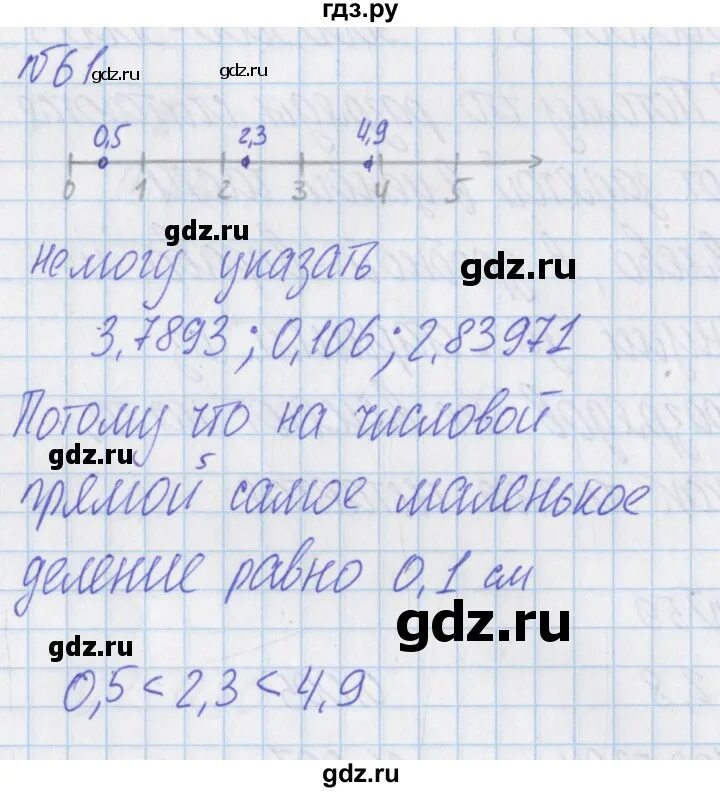 гдз.ру
№61
gdz.ru
gdz.ru
0,5 2,3 4,9
0 1 2 3 4 5
gdz.ru
не могу указать
gdz.ru
3,7893; 0,106; 2,83971
Потому что на числовой
gdz.ru
прямой самое маленькое
деление равно 0,1 см
gdz.ru
gdz.ru
0,5 < 2,3 < 4,9
gdz.ru